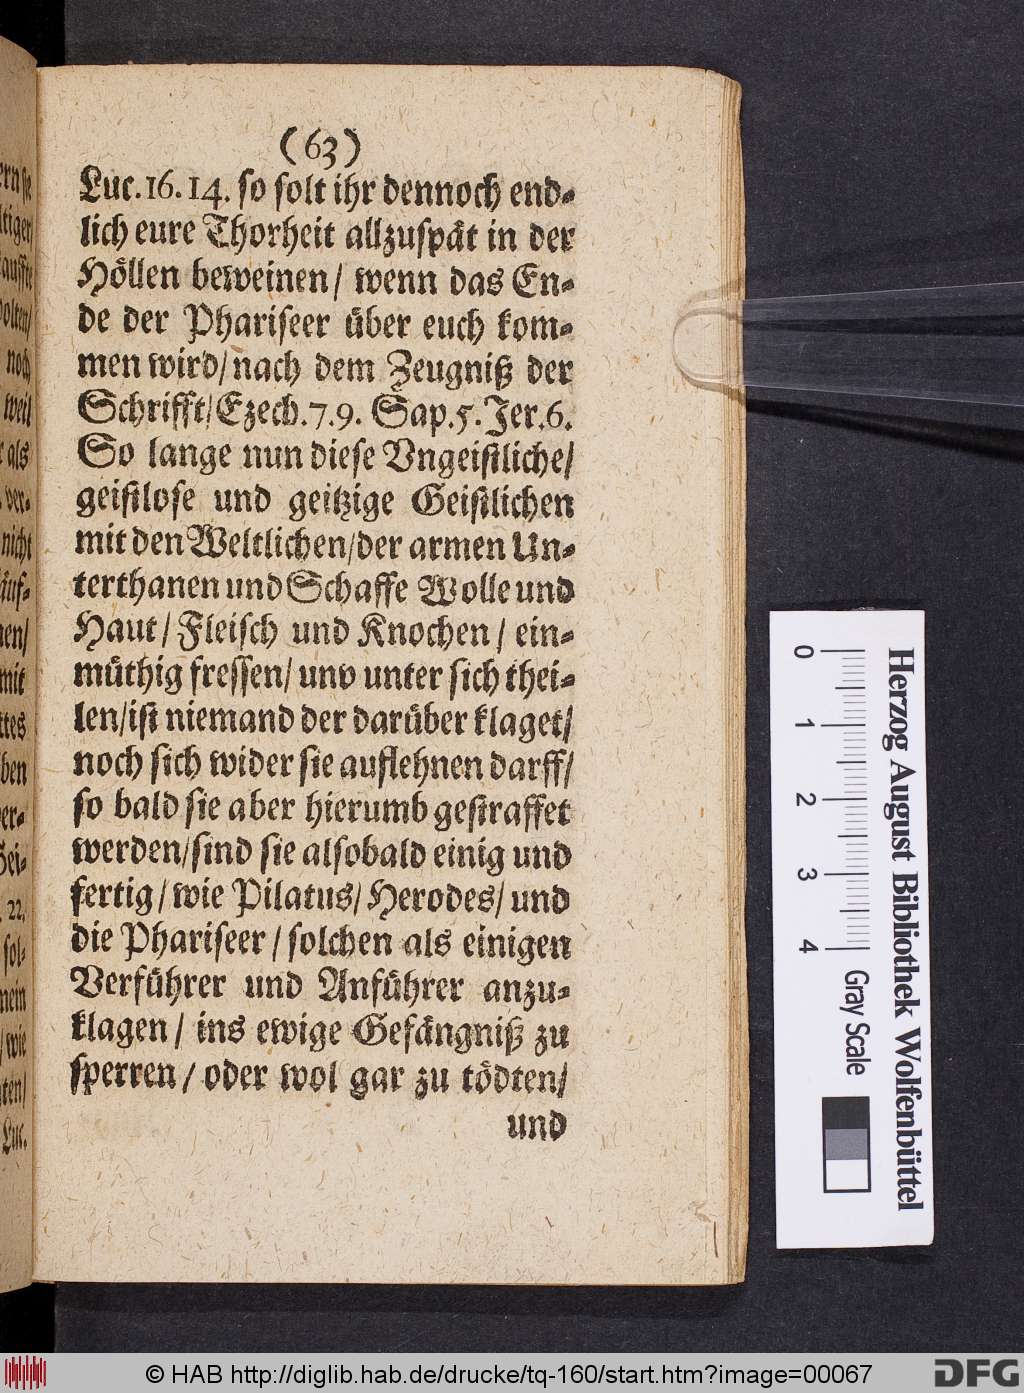 (63)
Luc. 16. 14. so solt ihr dennoch end-
lich eure Thorheit allzuspåt in der
Hǒllen beweinen/ wenn das En-
de der Phariseer ůber euch kom-
men wird/ nach dem Zeugniß der
Schrifft/ Ezech. 7. 9. Sap. 5. Jer. 6.
So lange nun diese Vngeistliche/
geistlose und geitzige Geistlichen
mit den Weltlichen/ der armen Un-
terthanen und Schaffe Wolle und
Haut/ Fleisch und Knochen/ ein-
můthig fressen/ unv unter sich thei-
len/ ist niemand der darůber klaget/
noch sich wider sie auflehnen darff/
so bald sie aber hierumb gestraffet
werden/ sind sie alsobald einig und
fertig/ wie Pilatus/ Herodes/ und
die Phariseer/ solchen als einigen
Verfůhrer und Anfůhrer anzu-
klagen/ ins ewige Gefångniß zu
sperren/ oder wol gar zu tǒdten/
und
ern sie
ltiger
auffte
wolten/
noch
weil
als
ver-
nicht
åuf-
nen/
mit
ttes
ben
er-
Gei-
22.
sol-
mein
/wie
ten/
Luc.
0 1 2 3 4
Gray Scale
Herzog August Bibliothek Wolfenbüttel
© HAB http://diglib.hab.de/drucke/tq-160/start.htm?image=00067
DFG